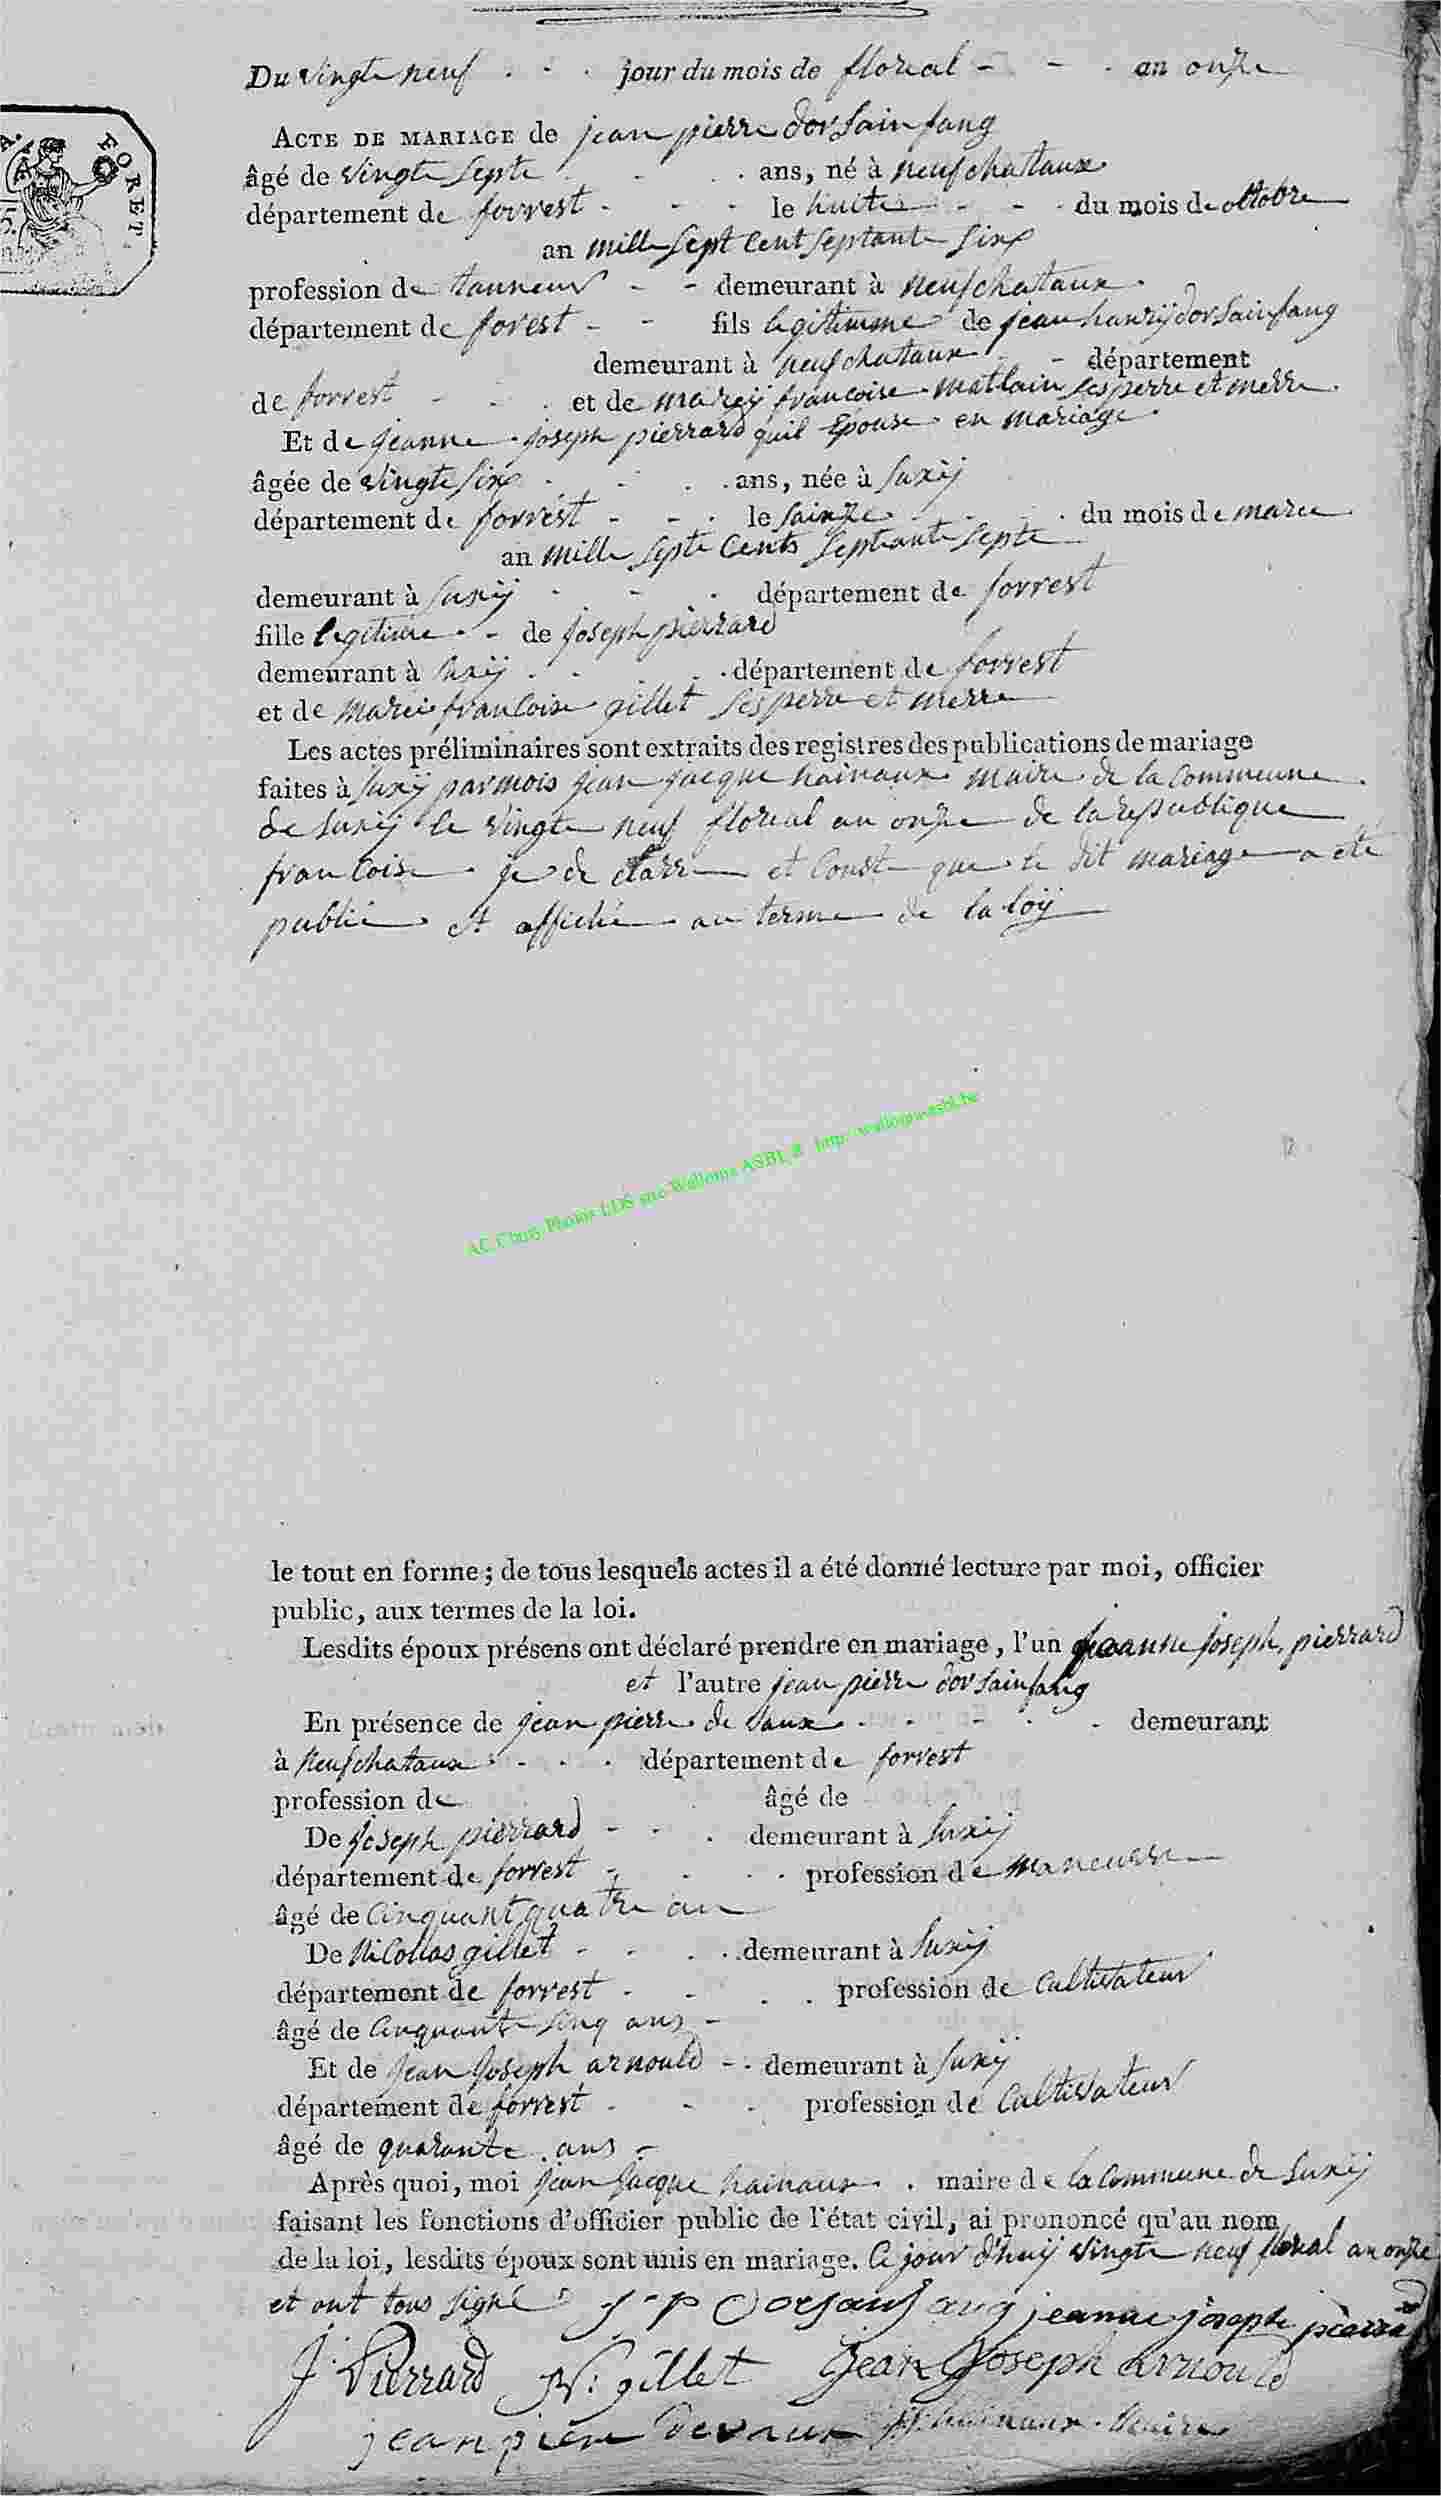 Du vingte neuf jour du mois de floreal - - an onze
ACTE DE MARIAGE de jean pierre dorsainfang
FORET
âgé de vingte septe ans, né à neufchataux
département de forrest - - - le huite - - du mois de ottobre
an mille sept cent septante six
profession de tanneur - - demeurant à neufchataux
département de forest - - fils legitimme de jean hanrÿ dorsainfang
demeurant à neufchataux - département
de forrest - - et de mareÿ francoise matlain ses perre et merre
Et de jeanne joseph pierrard quil Epouse en mariage
âgée de vingte six ans, née à Suxÿ
département de forrest - - le sainze du mois de marce
an mille septe cents septante septe
demeurant à Suxÿ - département de forrest
fille legitime - de joseph pierrard
demeurant à Suxÿ département de forrest
et de mareie francoise gillet ses perre et merre
Les actes préliminaires sont extraits des registres des publications de mariage
faites à Suxÿ par mois jean jacque hainaux maire de la commeune
de Suxÿ le vingte neuf floreal an onze de la republique
francoise je de clarre et Conste que le dit mariage a eté
publié et affiché au terme de la loÿ
AC Chiny Photos LDS site Wallonia ASBL @ http://walloniaasbl.be
le tout en forme; de tous lesquels actes il a été donné lecture par moi, officier
public, aux termes de la loi.
Lesdits époux présens ont déclaré prendre en mariage, l'un jeanne joseph pierrard
et l'autre jean pierre dorsainfang
En présence de jean pierre de vaux - - demeurant
à neufchataux - département de forrest
profession de âgé de
De joseph pierrard - - demeurant à Suxÿ
département de forrest - profession de maneuvre
âgé de cinquant quatre an
De Nicollas gillet - - demeurant à Suxÿ
département de forrest - - profession de Cultivateur
âgé de cinquante sinq ans -
Et de jean joseph arnould - demeurant à Suxÿ
département de forrest - - profession de Cultivateur
âgé de quarante ans -
Après quoi, moi jean jacque hainaux maire de la Commune de Suxÿ
faisant les fonctions d'officier public de l'état civil, ai prononcé qu'au nom
de la loi, lesdits époux sont unis en mariage. Ce jour d'huiÿ vingte neuf floreal an onze
et ont tous signé J-P Dorsainfang jeanne joseph pierrard
J. Pierrard N. gillet Jean Joseph arnould
jean piere devaux JJ. hainaux Maire